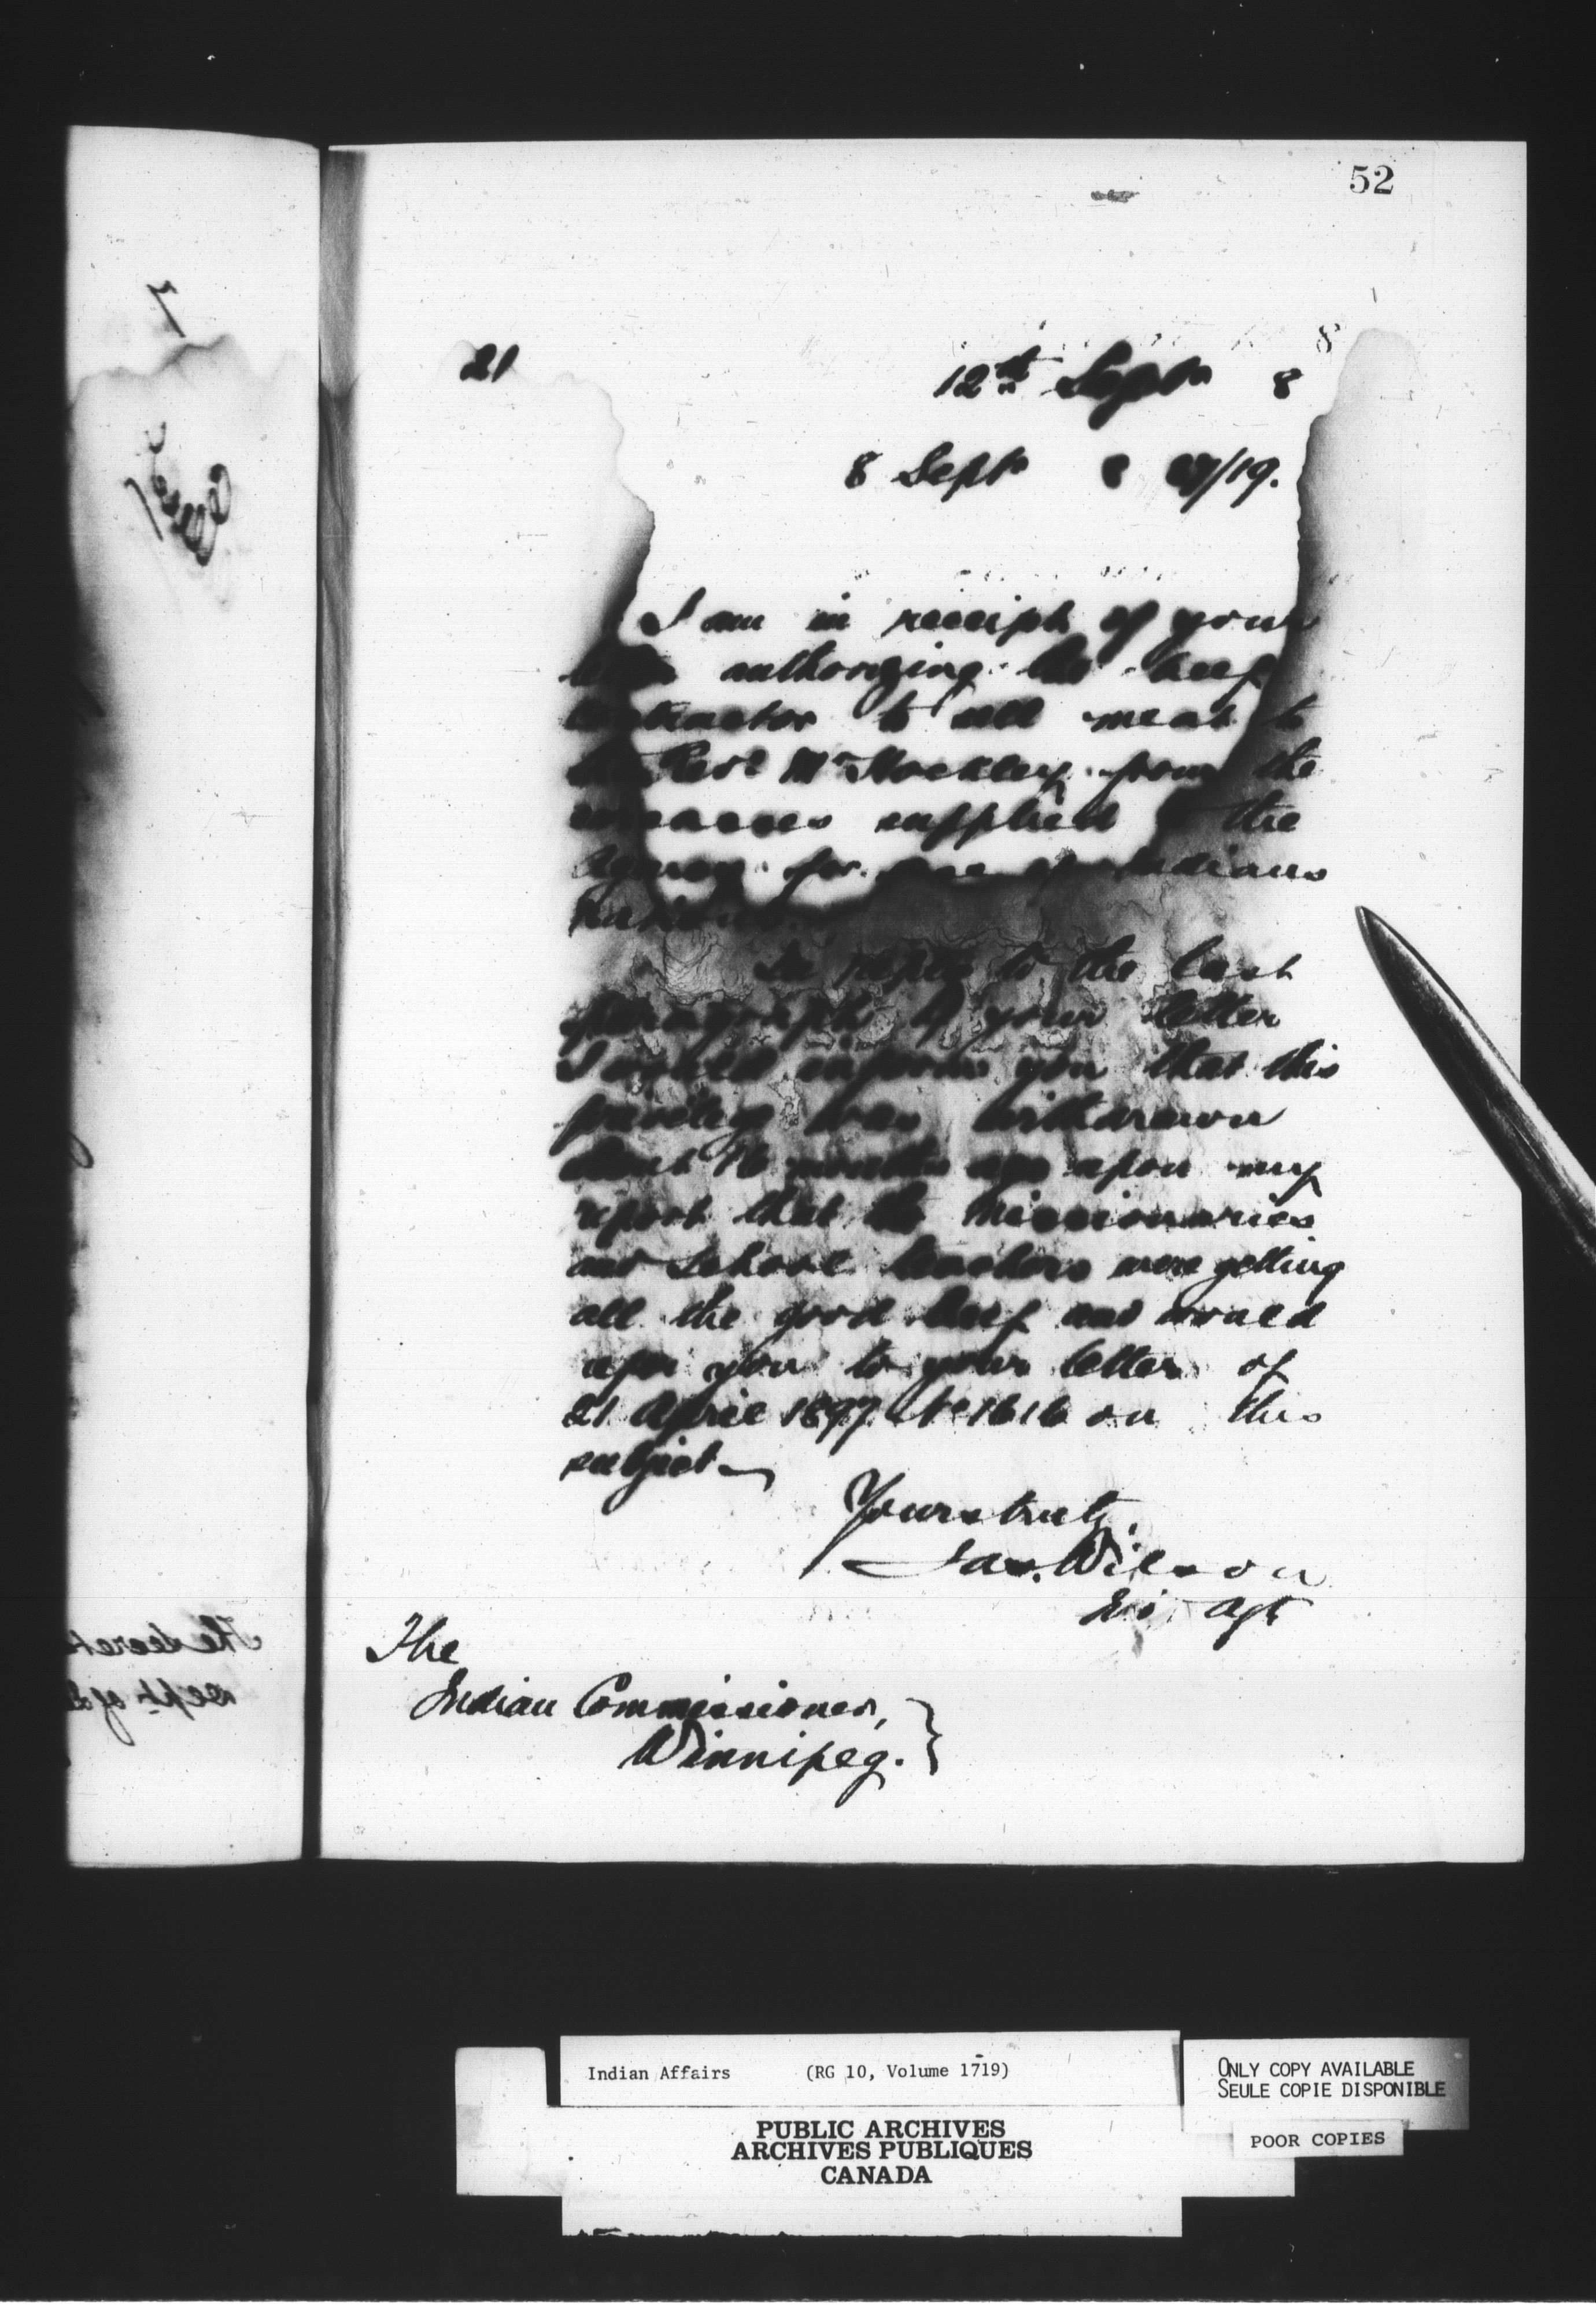 52
21
12th Sept 8
8 Sept 8 /19.
I am in receipt of your
letter authorizing the beef
contractor to sell meat to
the Revd Mr Stockley from the
carcases supplied to the
Agency for use of Indians
rations.
In reply to the last
paragraph of your letter
I would inform you that this
privilege was withdrawn
about 16 months ago upon my
report that the missionaries
and school teachers were getting
all the good beef and would
refer you to your letter of
21 April 1897 No 1616 on this
subject.
Yours truly,
Jas. Wilson
In. Agt
The
Indian Commissioner,
Winnipeg.
Indian Affairs (RG 10, Volume 1719)
PUBLIC ARCHIVES
ARCHIVES PUBLIQUES
CANADA
ONLY COPY AVAILABLE
SEULE COPIE DISPONIBLE
POOR COPIES